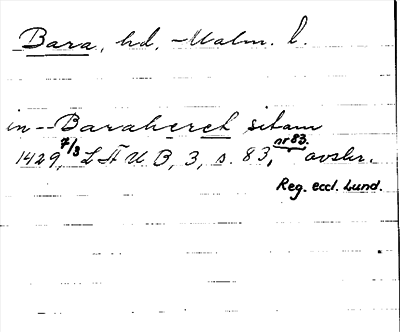 Bara, hd, Malm. l.
in -- Baraheret sitam
1429 7/3 LÄUB, 3, s. 83, nr 83. avskr.
Reg. eccl. Lund.